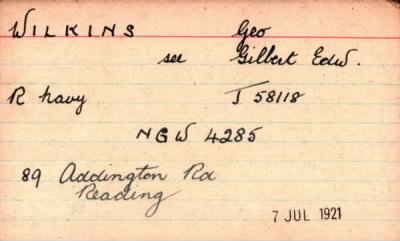 WILKINS Geo
see Gilbert Edw.
R navy J 58118
NGW 4285
89 Addington Rd
Reading
7 JUL 1921